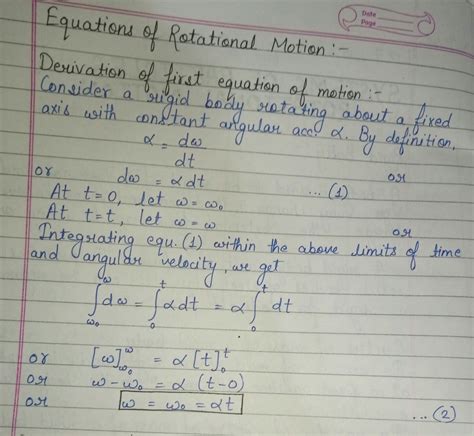 Date
Page
Equations of Rotational Motion :-
Derivation of first equation of motion :-
Consider a rigid body rotating about a fixed
axis with constant angular accⁿ α. By definition,
α = dω/dt
or
or dω = α dt ... (1)
At t=0, let ω = ω₀
At t=t, let ω = ω
or
Integrating equ. (1) within the above limits of time
and angular velocity, we get
∫_{ω₀}^{ω} dω = ∫_{0}^{t} α dt = α ∫_{0}^{t} dt
or [ω]_{ω₀}^{ω} = α [t]_{0}^{t}
or ω - ω₀ = α (t-0)
or ω = ω₀ = αt ... (2)